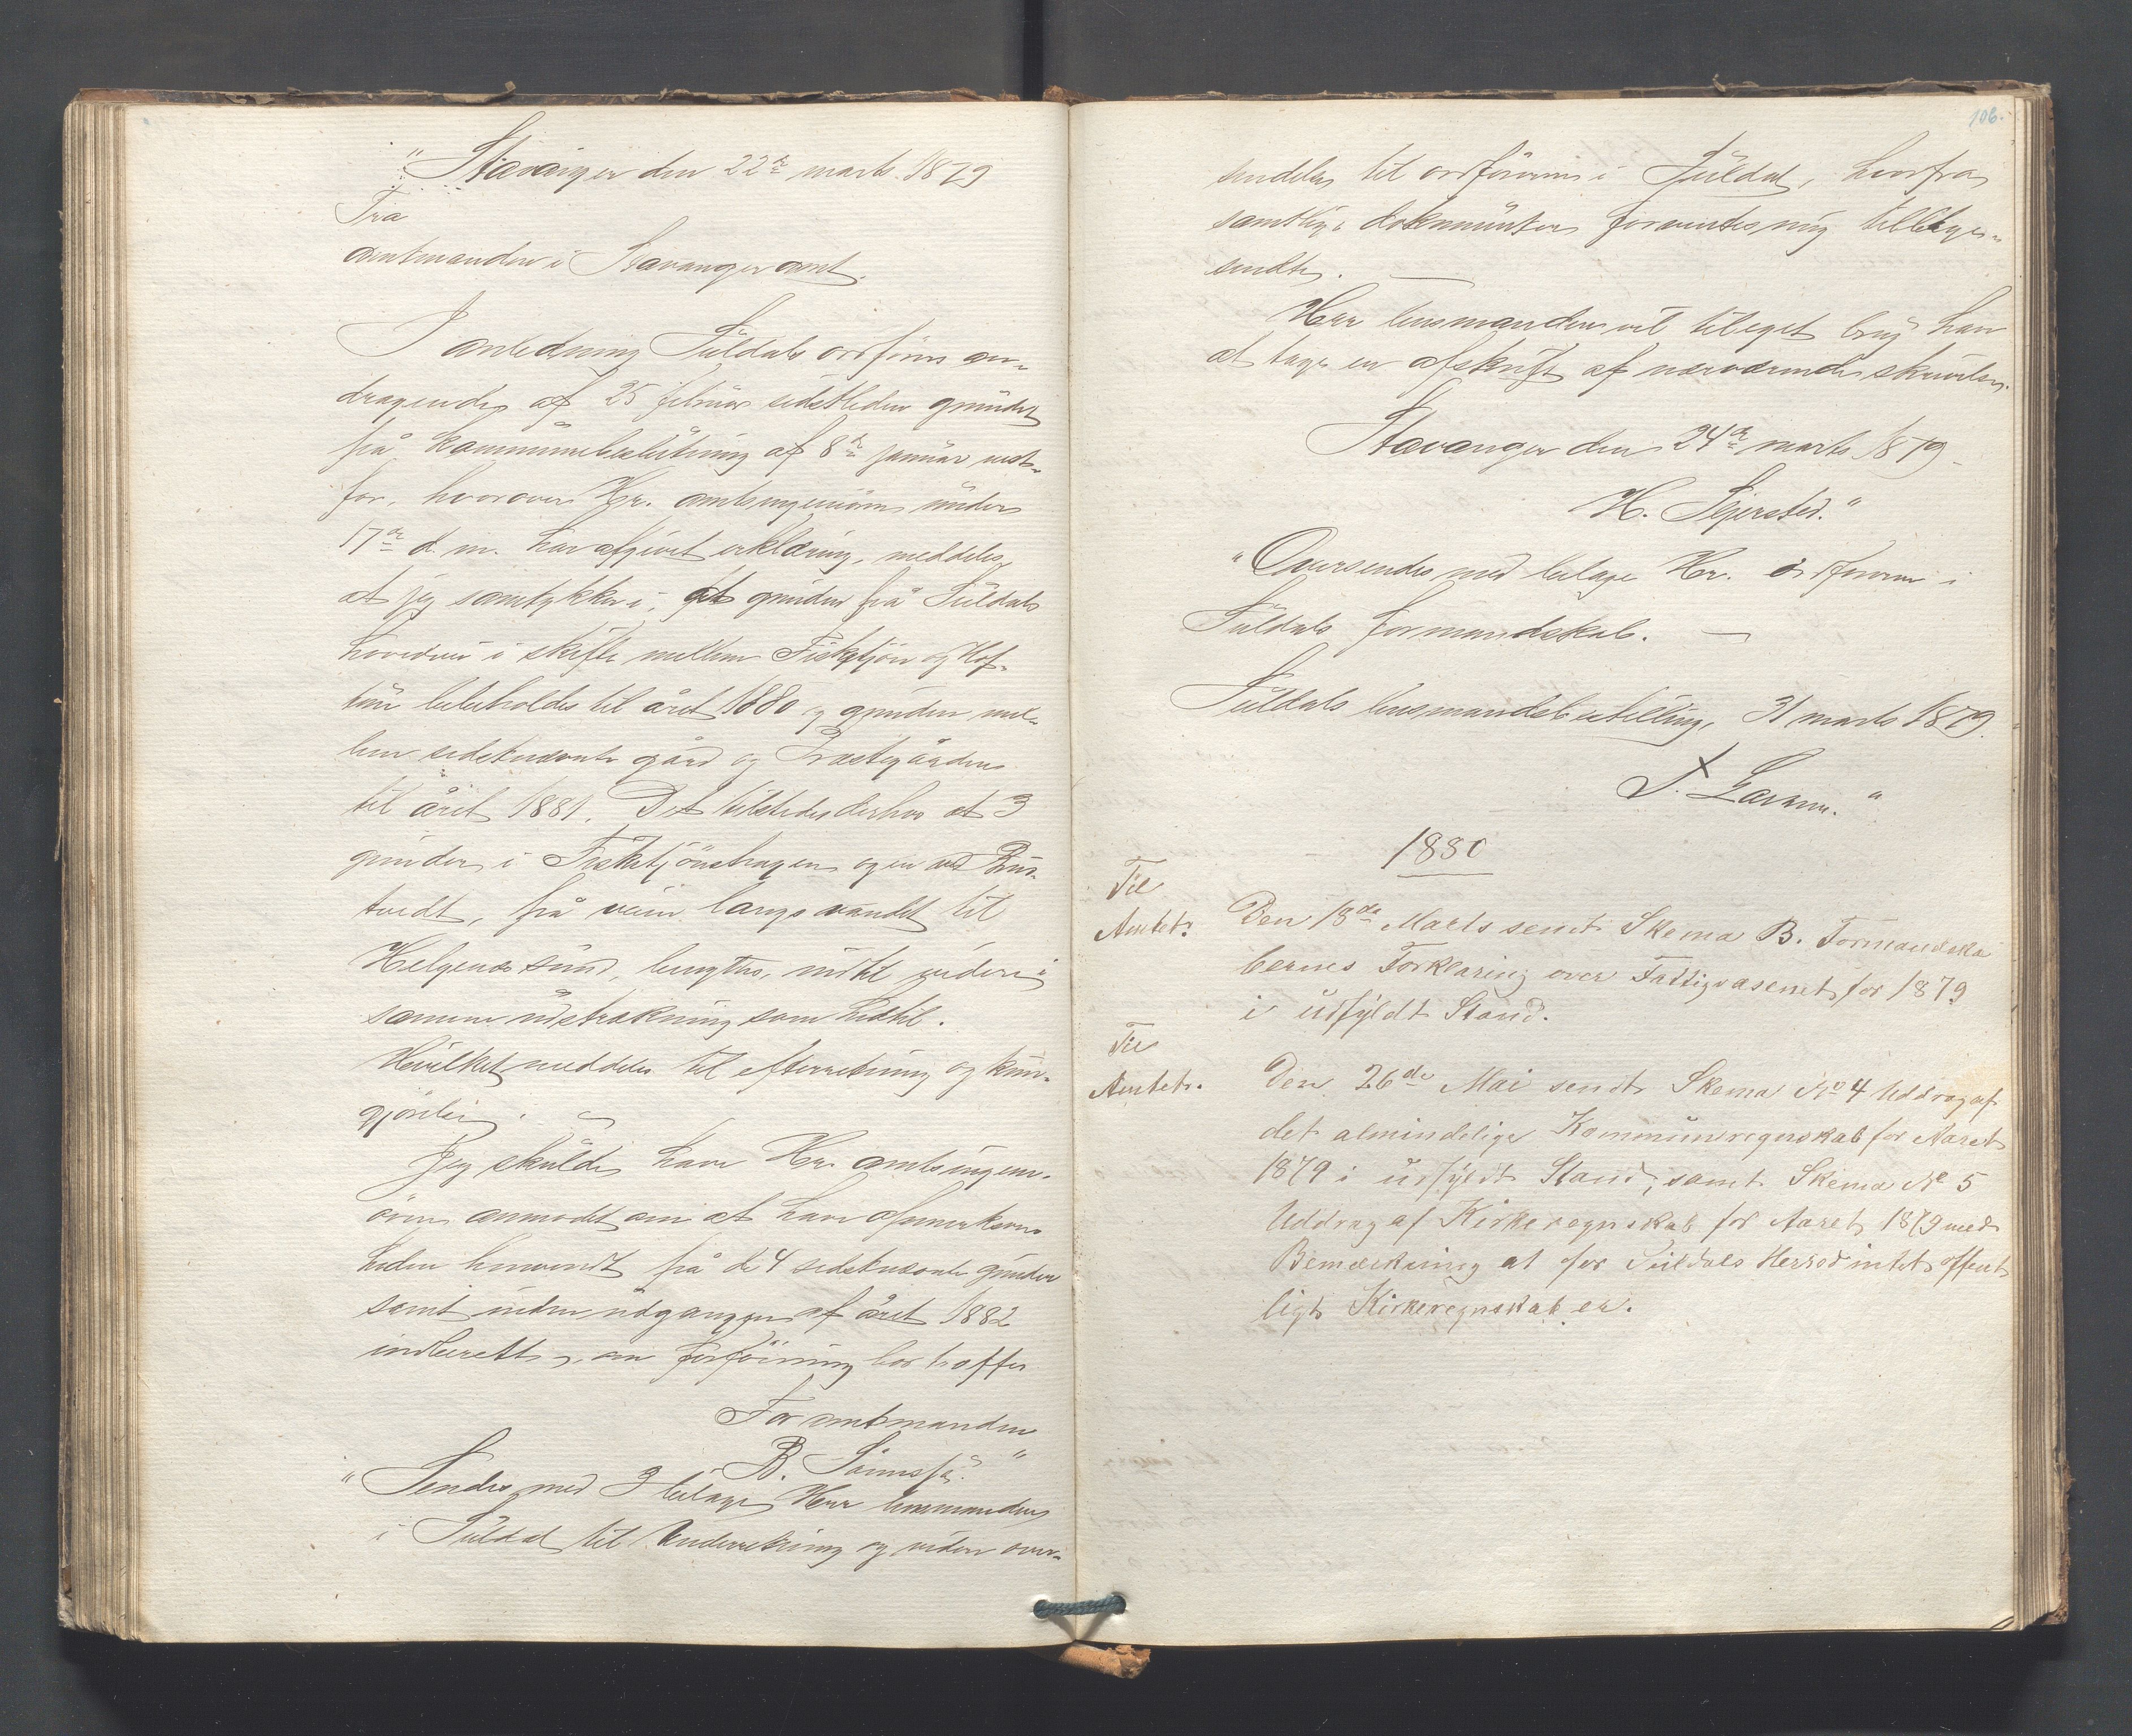 "Stavanger den 22de marts 1879
Fra
amtmanden i Stavanger amt.
I anledning Suldals ordförers an-
dragende af 25 februar sidstleden grundet
på kommunebeslutning af 8de januar nest
før, hvorover Hr. amtsingeniøren under
17de d. m. har afgivet erklæring, meddeles
at jeg samtykker i, at grinden på Suldals
hovedvei i skifte mellem Fisketjön og Hof-
tun bibeholdes til året 1880 og grinden mel-
lem sidstnævnte gård og Præstegården
til året 1881. Det tilstedes derhos at 3
grinder i Fisketjönshagen og en ved
tvedt, på veien langs vandet til
Helgenæs sund, benyttes, indtil videre i
samme udstrækning som hidtil.
Hvilket meddeles til efterretning og kund-
gjörelse.
Jeg skulde have Hr. amtsingeni-
ören anmodet om at have opmærksom
heden henvendt på de 4 sidstnævnte grinder
samt inden udgangen af året 1882
indberette, om forföining bör træffes
For amtmanden
B. "
"Sendes med 3 bilage Herr lensmanden
i Suldal til Underretning og videre over-
106.
sendelse til ordföreren i Suldal, hvorfra
samtlige dokumenter forventes mig tilbage-
sendte.
Herr lensmanden vil til eget brug have
at tage en afskrift af nærværende skrivelse.
Stavanger den 24de marts 1879
H. Sejersted."
"Oversendes med bilage Hr. ordföreren i
Suldals formandskab.
Suldals lensmandsbestilling, 31 marts 1879.
T. "
1880
Til
Amtet.
Den 18de Marts sendt Skema B. Formandska
bernes Forklaring over Fattigvæsenet for 1879
i udfyldt Stand.
Til
Amtet.
Den 26de Mai sendt Skema No 4 Uddrag af
det almindelige Kommuneregnskab for Aaret
1879 i udfyldt Stand, samt Skema No 5
Uddrag af Kirkeregnskab for Aaret 1879 med
Bemærkning at for Suldals Herred intet offent
ligt Kirkeregnskab er.